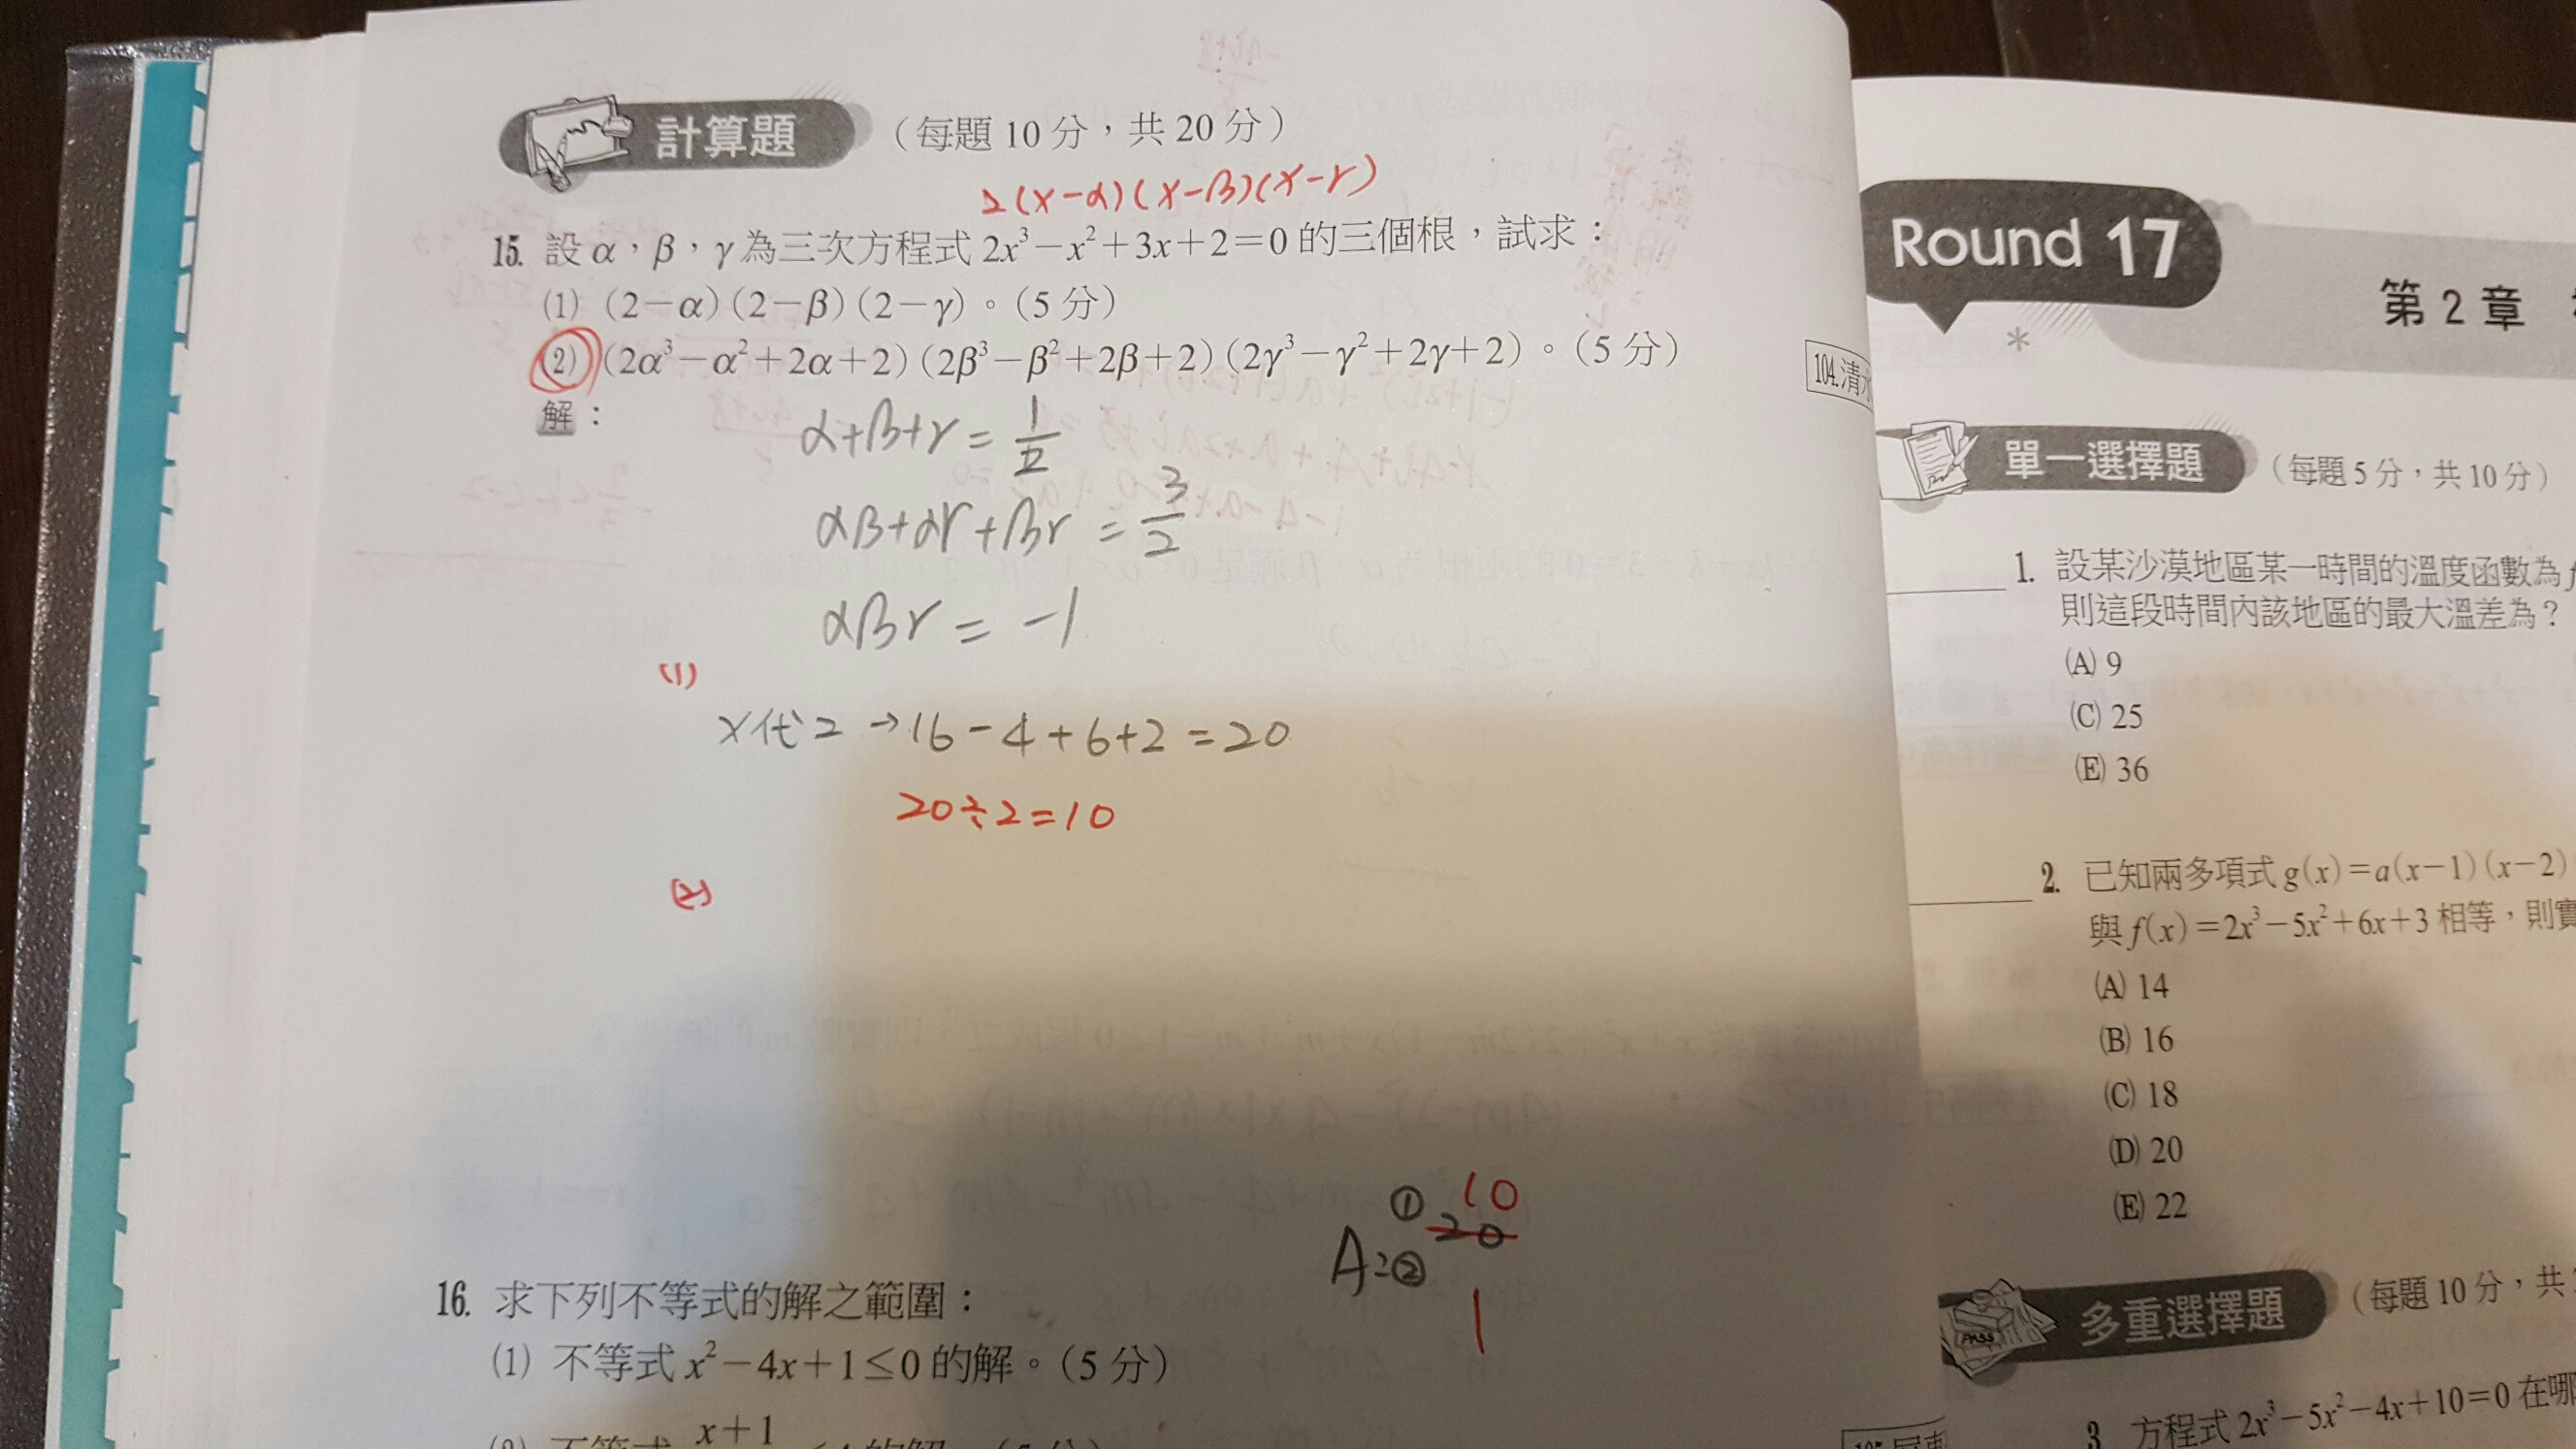 計算題 （每題 10 分，共 20 分）
2(x-α)(x-β)(x-γ)
15. 設 α，β，γ 為三次方程式 2x³－x²＋3x＋2＝0 的三個根，試求：
(1) (2－α)(2－β)(2－γ)。（5 分）
(2) (2α³－α²＋2α＋2)(2β³－β²＋2β＋2)(2γ³－γ²＋2γ＋2)。（5 分）
解：
α+β+γ = 1/2
αβ+αγ+βγ = 3/2
αβγ = -1
(1)
x代2 → 16-4+6+2 = 20
20÷2=10
(2)
① 10
20
A= ②
1
16. 求下列不等式的解之範圍：
(1) 不等式 x²－4x＋1≤0 的解。（5 分）
x＋1
Round 17
第 2 章
*
104.清水
單一選擇題 （每題 5 分，共 10 分）
1. 設某沙漠地區某一時間的溫度函數為 f
則這段時間內該地區的最大溫差為？
(A) 9
(C) 25
(E) 36
2. 已知兩多項式 g(x)＝a(x－1)(x－2)
與 f(x)＝2x³－5x²＋6x＋3 相等，則實
(A) 14
(B) 16
(C) 18
(D) 20
(E) 22
PASS
多重選擇題 （每題 10 分，共
3. 方程式 2x³－5x²－4x＋10＝0 在哪